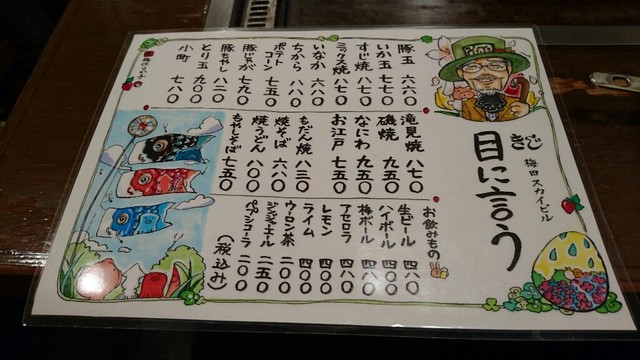 きじ
梅田スカイビル
目に言う
豚玉 六六〇
いか玉 七七〇
すじ焼 七七〇
ミックス焼 八七〇
いなか 六八〇
ちから 八〇〇
ポテトコーン 七五〇
豚じゃが 七九〇
豚もやし 八二〇
とり玉 九〇〇
小町 七八〇
滝見焼 八七〇
磯焼 九五〇
なにわ 九五〇
お江戸 七五〇
もだん焼 八三〇
焼そば 六八〇
焼うどん 八〇〇
もやしそば 七五〇
お飲みもの
生ビール 四八〇
ハイボール 四八〇
梅ボール 四八〇
アセロラ 四八〇
レモン 四〇〇
ライム 四〇〇
ウーロン茶 二〇〇
ジンジャエール 二五〇
ペプシコーラ 二〇〇
(税込み)